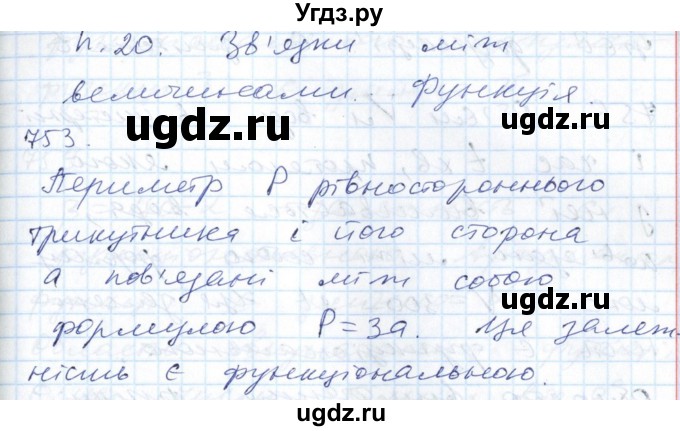 Угдз.ру
п. 20. Зв'язки між
величинами. Функція.
ugdz.ru ugdz.ru
753.
Периметр P рівностороннього
трикутника і його сторона
а пов'язані між собою
ugdz.ru ugdz.ru
формулою P=3a. Ця залеж-
ність є функціональною.
ugdz.ru